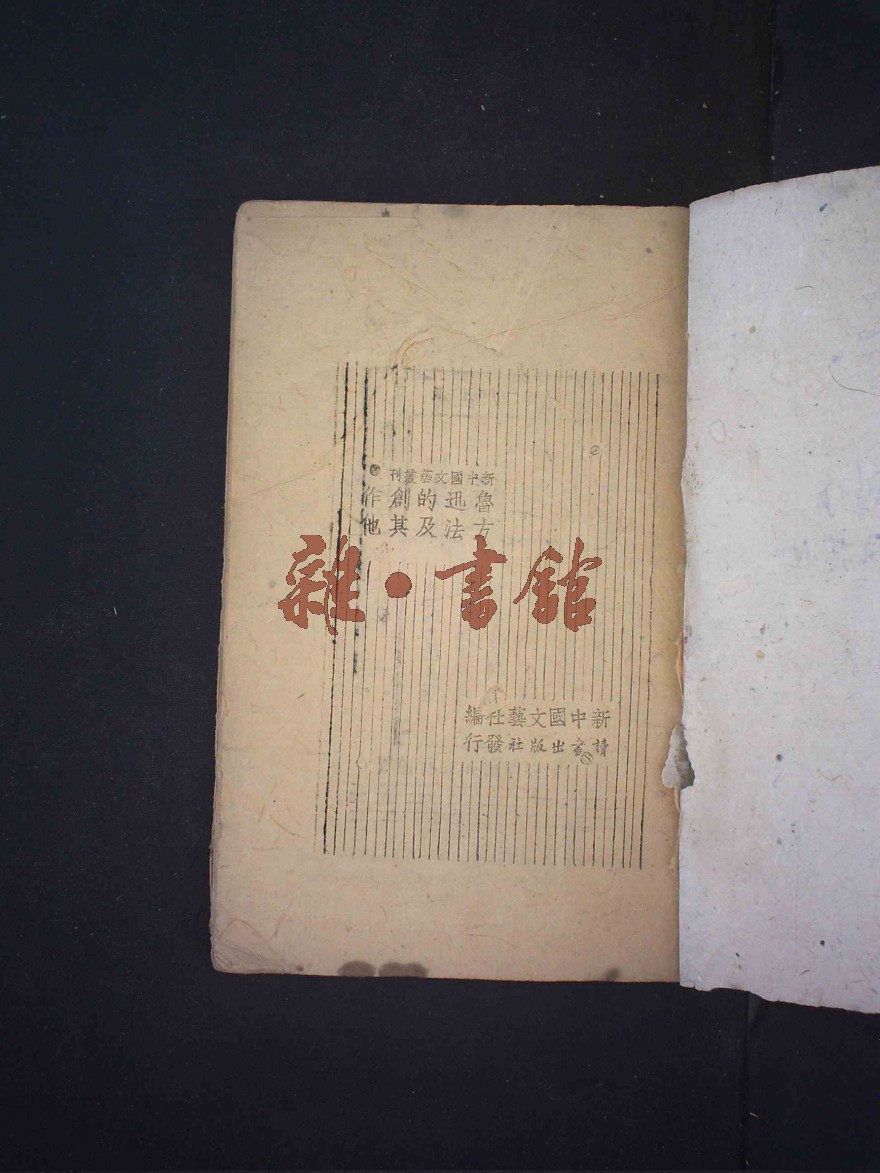 新中國文藝叢刊
魯迅的創作
方法及其他
雜·書館
新中國文藝社編
讀書出版社發行